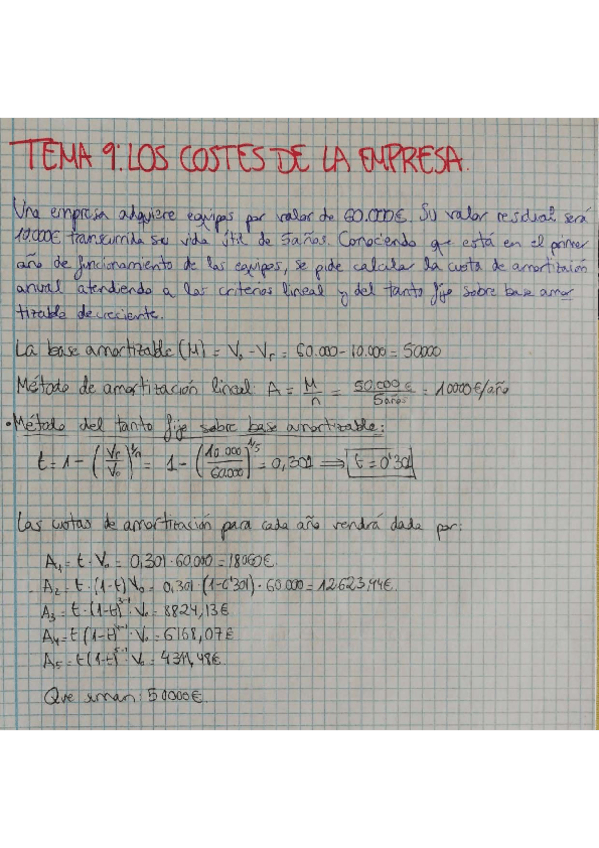 TEMA 9: LOS COSTES DE LA EMPRESA.
Una empresa adquiere equipos por valor de 60.000€. Su valor residual será
10.000€ transcurrida su vida útil de 5 años. Conociendo que está en el primer
año de funcionamiento de los equipos, se pide calcular la cuota de amortización
anual atendiendo a los criterios lineal y del tanto fijo sobre base amor
tizable decreciente.
La base amortizable (M) = V₀ - Vr = 60.000 - 10.000 = 50000
Método de amortización lineal: A = M/n = 50.000 €/5 años = 10000 €/año
• Método del tanto fijo sobre base amortizable:
t = 1 - (Vr/V₀)^1/n = 1 - (10.000/60000)^1/5 = 0,301 ⟹ t = 0'301
Las cuotas de amortización para cada año vendrá dada por:
A₁ = t · V₀ = 0,301 · 60.000 = 18060€.
A₂ = t · (1-t) V₀ = 0,301 · (1-0'301) · 60.000 = 12623,44€.
A₃ = t · (1-t)^3-1 · V₀ = 8824,13€
A₄ = t (1-t)^4-1 · V₀ = 6168,07€
A₅ = t (1-t)^5-1 · V₀ = 4311,48€.
Que suman: 50000€.